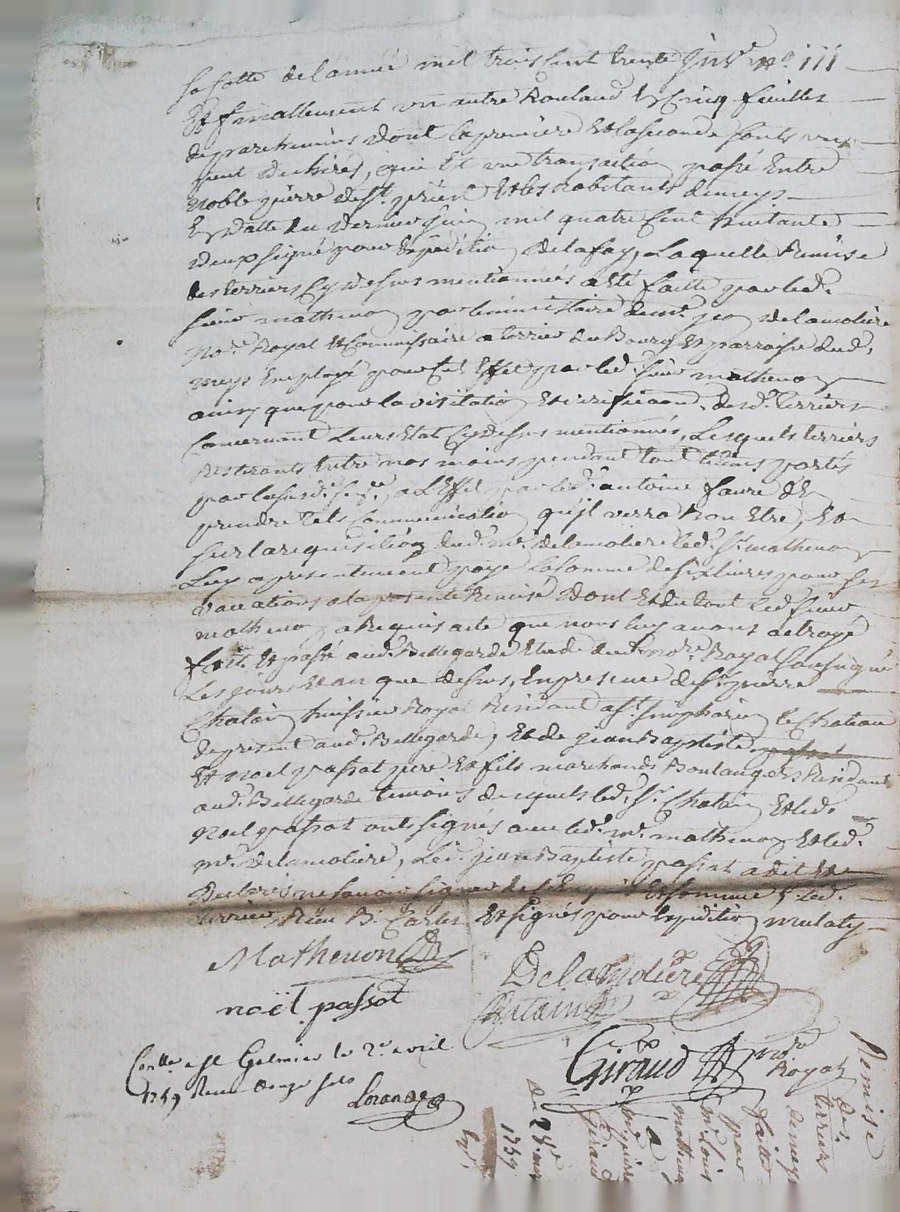 sa cotte de l'année mil trois cent trente
Et finallement un autre Rouland Cinq feuilles
de parchemins dont la premiere Et la seconde sont
dechirés, qui Est une transaction passé Entre
Noble pierre de St. prient Et les habitants de meys
En datte du dernier juin mil quatre cent huitante
deux signé pour Expedition Delafay, Laquelle Remise
des terriers Cy dessus mentionnés a Eté faitte par led.
sieur mathevon par le ministaire de me. jean delamoliere
No.re Royal Et Commissaire a terrier du Bourg Et parroisse dud.
meys Employé pour cet Effet par led. sieur mathevon
ainsy que pour la visitation Et desd. terriers
Concernant Leurs Etat Cy dessus mentionnés, Les quels terriers
Resterants Entre mes mains pendant tout
par a L'Effet par led. antoine faure de
prendre tels Communication qu'il verra Bon Etre, Et
sur la requisition dud. me. delamoliere led. sr. mathevon
Luy a presentement payé La somme de six livres pour ses
vacations a la presente Remise Dont Et du tout led. sieur
mathevon a Requis acte que nous luy avons octroyé
fait Et passé aud. Bellegarde Etude dud. no.re Royal soussigné
Les jours Et an que dessus, En presence de Sr. pierre
Chatain huissier Royal Residant a St. simphorien le Chateau
de present aud. Bellegarde, Et de jean Baptiste
Et noel passot pere Et fils marchands Boulangers Residant
aud. Bellegarde temoins desquels led. Sr. Chatain Et led.
Noel passot ont signés avec led. me. mathevon Et led.
me. delamoliere, Led. jean Baptiste passot a dit Et
Declaré ne savoir signer de ce Enquis Et sommé led.
Et signés pour Expedition mulaty
Mathevon
Delamoliere
noël passot
Chatain
Giraud no.re Royal
Con.lle a St Galmier le 2e avril
1759 Reçu douze sols
Loranage
Remise
des terriers
de meys
faitte
par
me. Louis
mathevon
a
Giraud
du 28e
1759